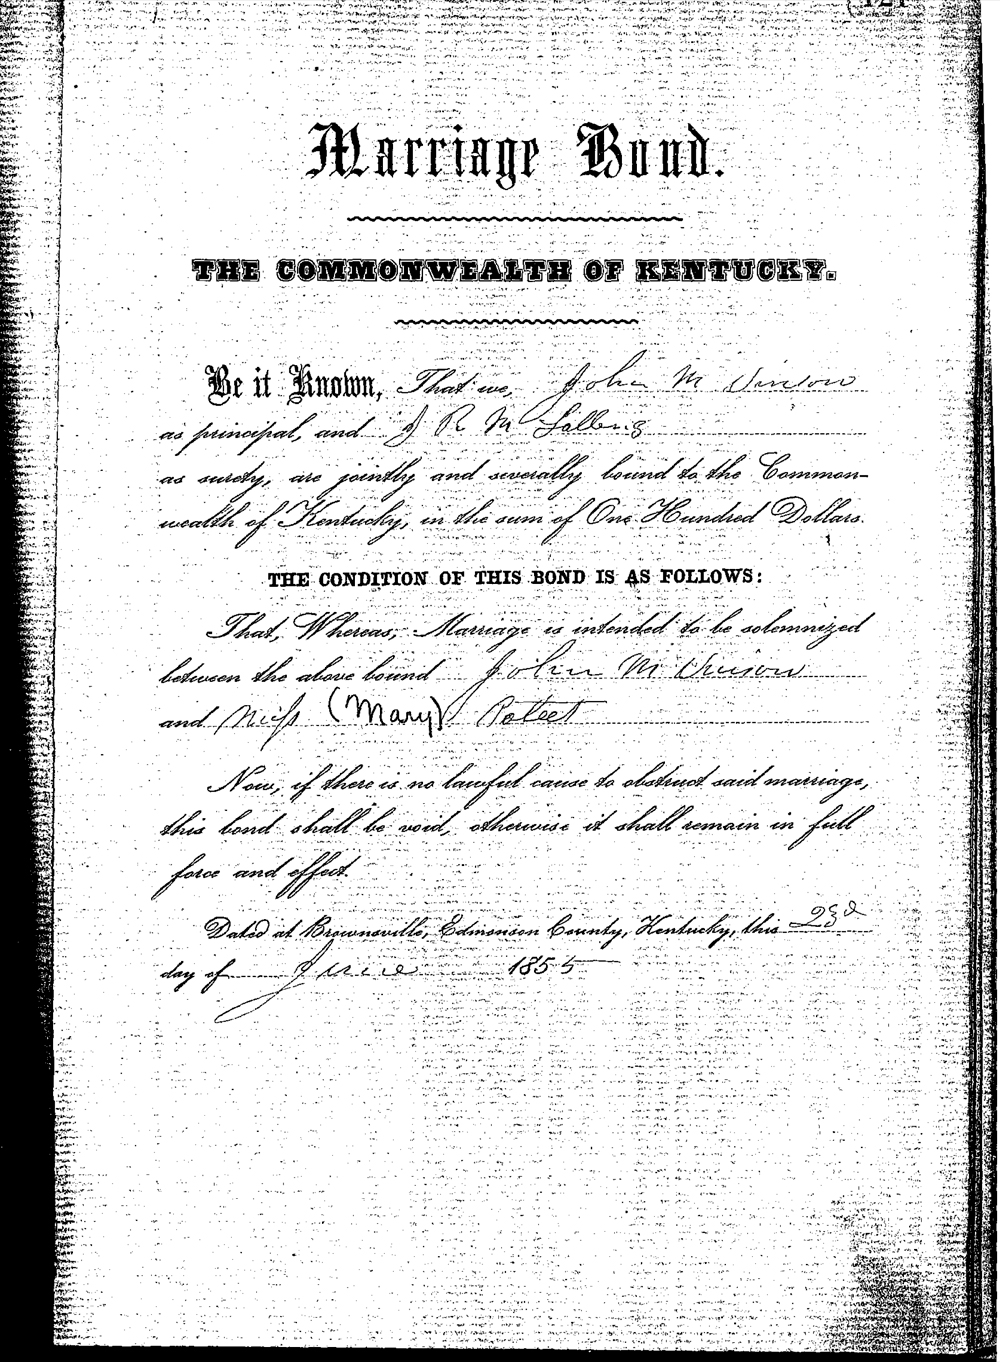 121
Marriage Bond.
THE COMMONWEALTH OF KENTUCKY.
Be it Known, That we, John M Vinson
as principal, and J R M
as surety, are jointly and severally bound to the Common-
wealth of Kentucky, in the sum of One Hundred Dollars.
THE CONDITION OF THIS BOND IS AS FOLLOWS:
That, Whereas, Marriage is intended to be solemnized
between the above bound John M Vinson
and Miss (Mary) Poteet
Now, if there is no lawful cause to obstruct said marriage,
this bond shall be void, otherwise it shall remain in full
force and effect.
Dated at Brownsville, Edmonson County, Kentucky, this 23rd
day of June 1855